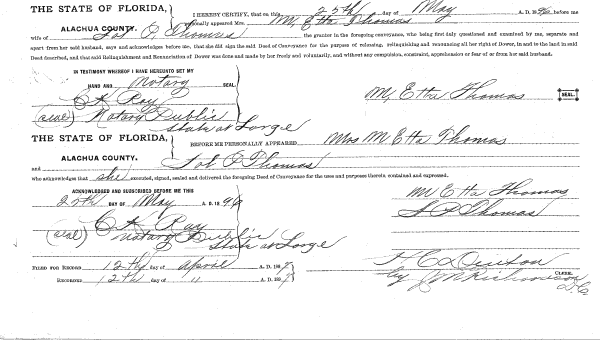 THE STATE OF FLORIDA,
ALACHUA COUNTY.
I HEREBY CERTIFY, that on this 25th day of May A. D. 1896 before me
personally appeared Mrs. M, Etta Thomas
wife of Sol. P, Thomas the grantor in the foregoing conveyance, who being first duly questioned and examined by me, separate and
apart from her said husband, says and acknowledges before me, that she did sign the said Deed of Conveyance for the purpose of releasing, relinquishing and renouncing all her right of Dower, in and to the land in said
Deed described, and that said Relinquishment and Renunciation of Dower was done and made by her freely and voluntarily, and without any compulsion, constraint, apprehension or fear of or from her said husband.
IN TESTIMONY WHEREOF I HAVE HEREUNTO SET MY
HAND AND Notary SEAL.
C K Ray
(seal) Notary Public
State at Large
M, Etta Thomas SEAL.
THE STATE OF FLORIDA,
ALACHUA COUNTY.
BEFORE ME PERSONALLY APPEARED Mrs M Etta Thomas
and Sol. P Thomas
who acknowledges that she executed, signed, sealed and delivered the foregoing Deed of Conveyance for the uses and purposes therein, contained and expressed.
ACKNOWLEDGED AND SUBSCRIBED BEFORE ME THIS
25th DAY OF May A. D. 1896
M Etta Thomas
S P Thomas
C K Ray
(seal) Notary Public
State at Large
FILED FOR RECORD 12th day of April A. D. 1897
RECORDED 12th day of " A. D. 1897
H C Denton CLERK.
by J M Richardson
D.C.